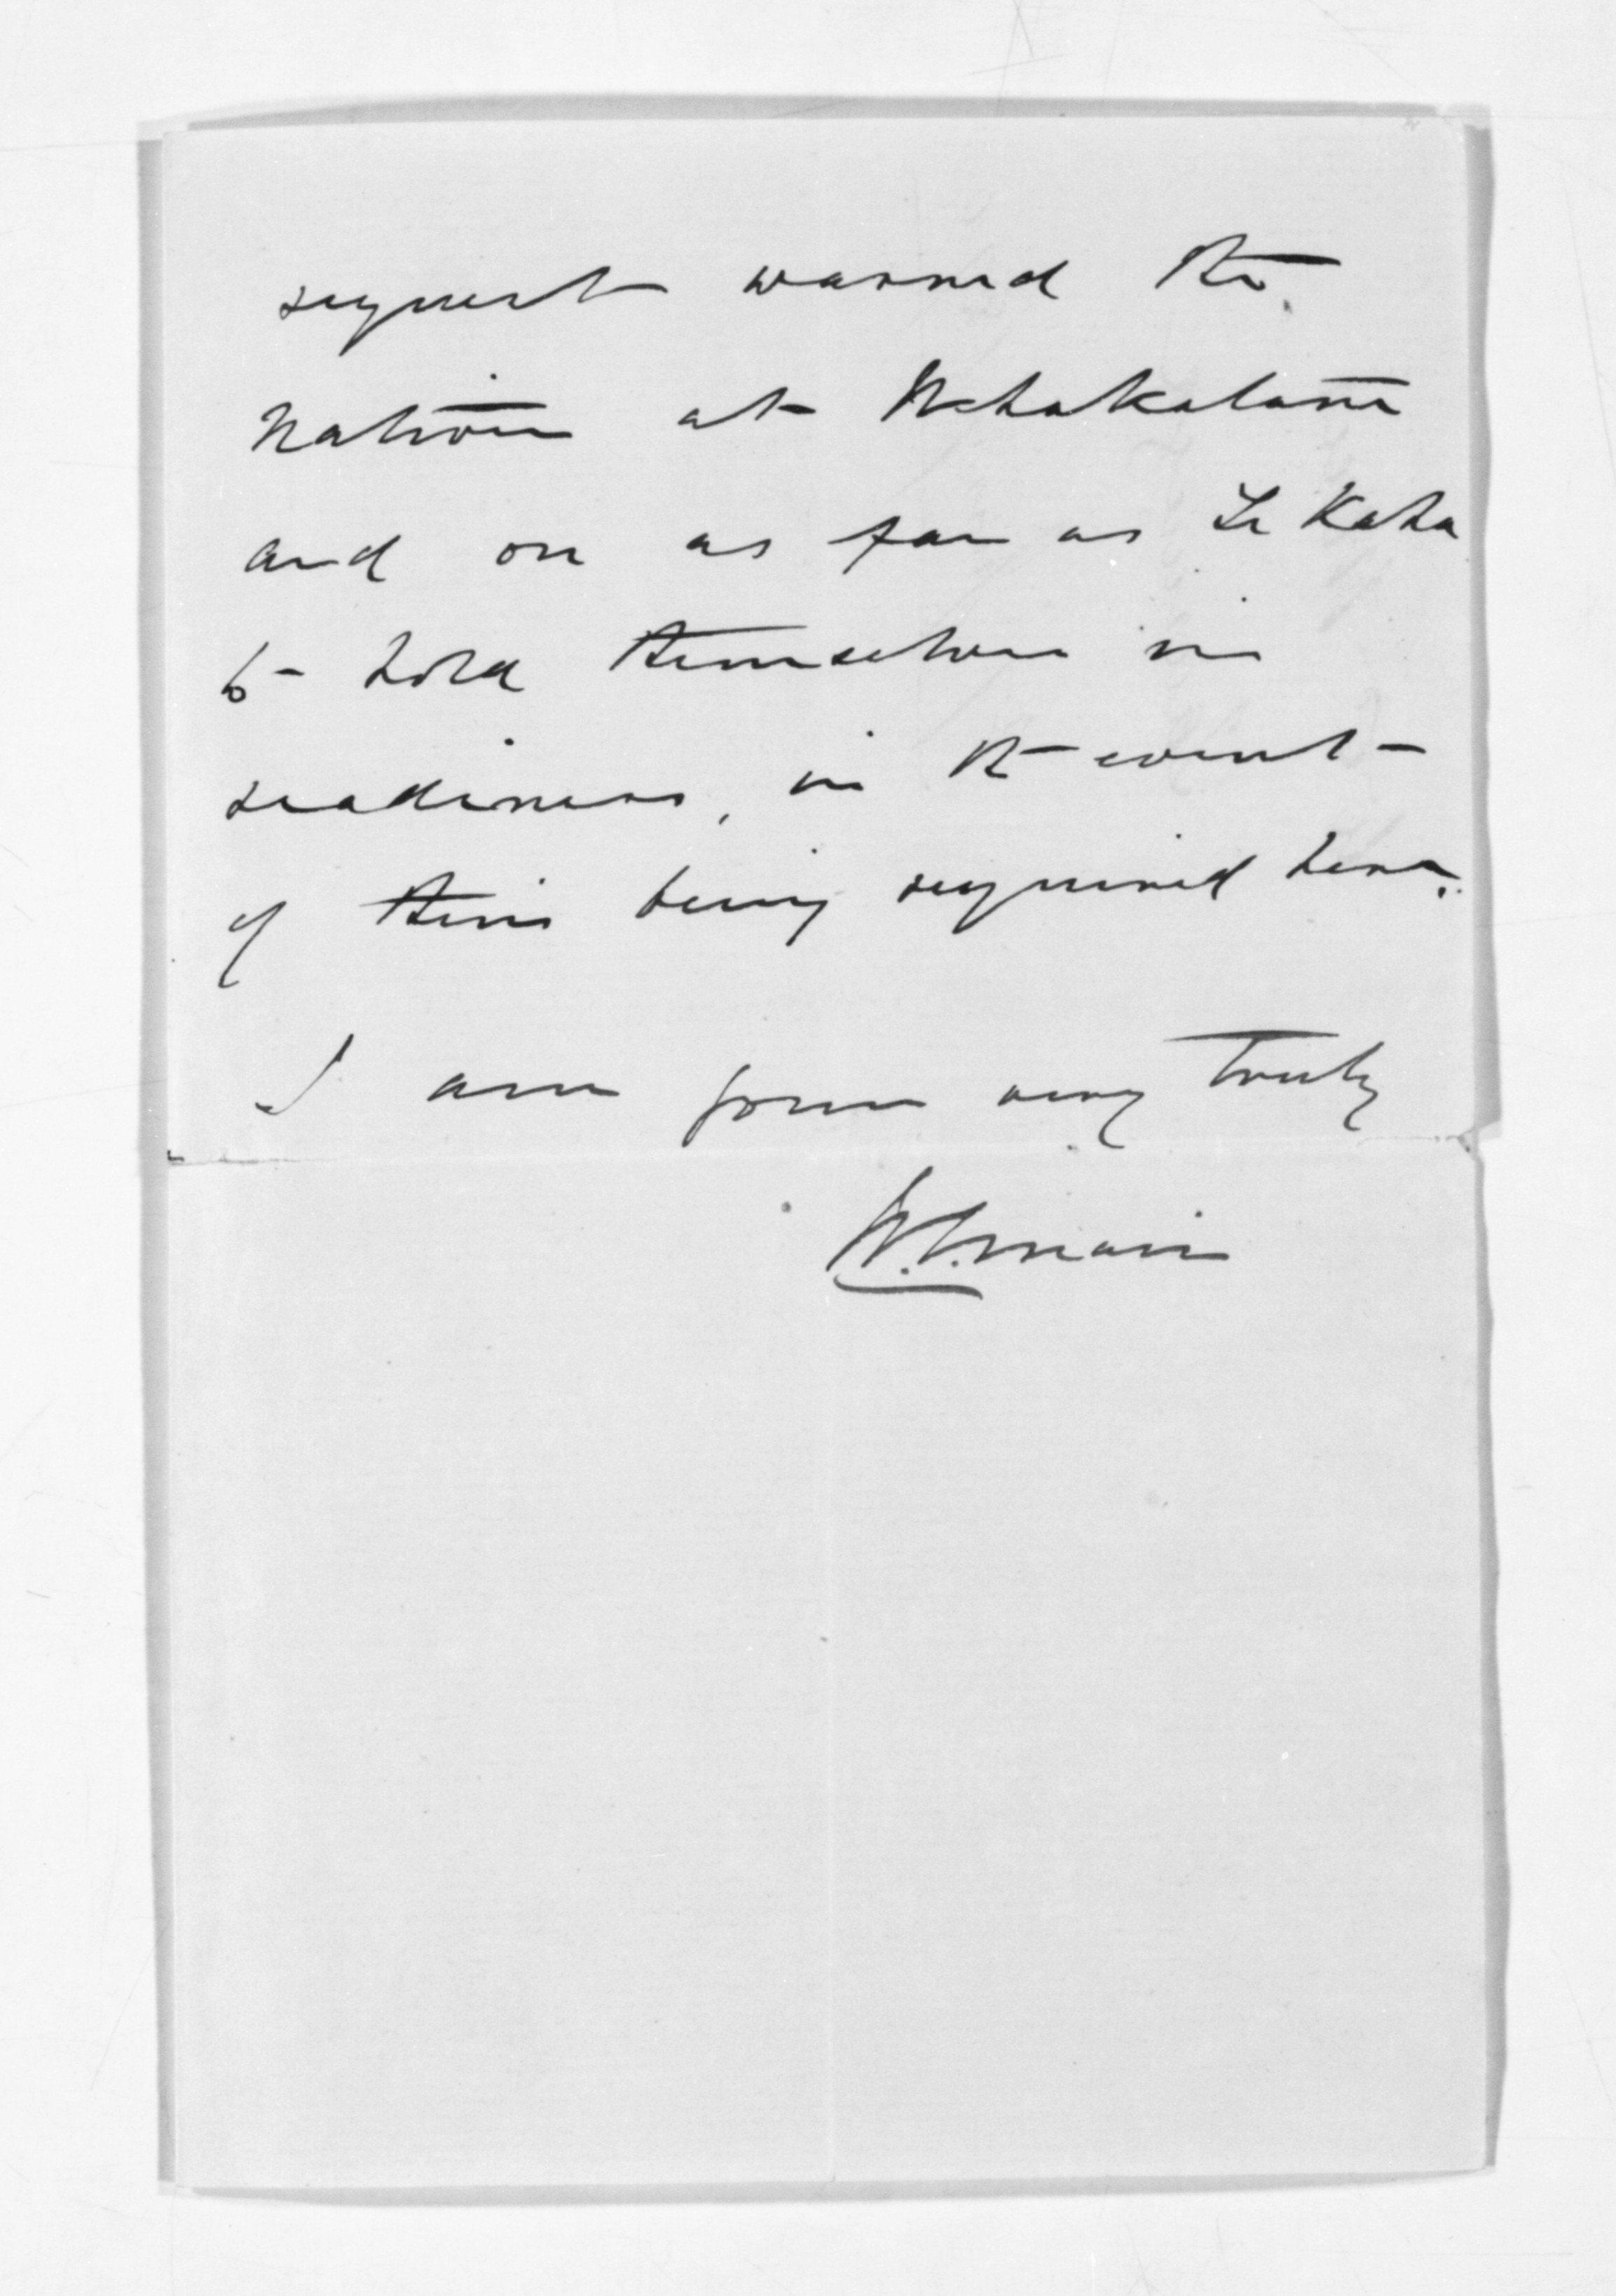 request warned the
Natives at Whakatane
and on as far as Te Kaha
to hold themselves in
readiness, in the event
of their being required here.
I am yours very truly
W.G. Mair